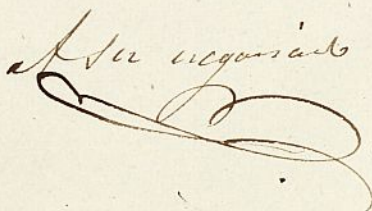 A Ser negociant